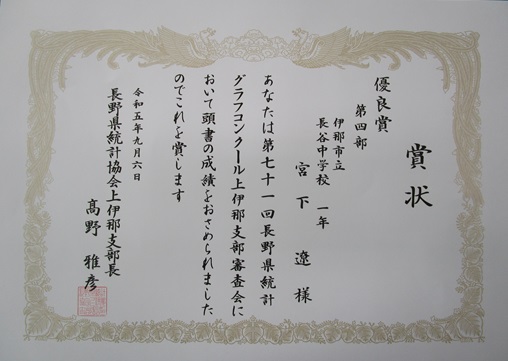 賞状
優良賞
第四部
伊那市立
長谷中学校 一年
宮下 遼 様
あなたは第七十一回長野県統計
グラフコンクール上伊那支部審査会に
おいて頭書の成績をおさめられました
のでこれを賞します
令和五年九月六日
長野県統計協会上伊那支部長
髙野 雅彦